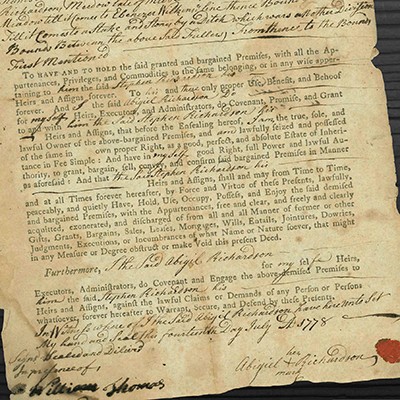 Richardson Medow
till it Comes to Ebenezer
till it Comes to a Stake and Stone
Bounds Between the above Said Fallows, from thence to the Bounds
First Mentiond
To HAVE AND TO HOLD the said granted and bargained Premises, with all the Ap-
purtenances, Privileges, and Commodities to the same belonging, or in any wise apper-
taining to him the said Stephen Richardson his
Heirs and Assigns forever. To his and thire only proper Use, Benefit, and Behoof
forever. And I the said Abigiel Richardson for
my self Heirs, Executors, and Administrators, do Covenant, Promise, and Grant
to and with him the Said Stephen Richardson his
Heirs and Assigns, that before the Ensealing hereof, I am the true, sole, and
lawful Owner of the above-bargained Premises, and am lawfully seized and possessed
of the same in own proper Right, as a good, perfect, and absolute Estate of Inheri-
tance in Fee Simple: And have in my self good Right, full Power and lawful Au-
thority, to grant, bargain, sell, convey, and confirm said bargained Premises in Manner
as aforesaid: And that the Said Stephen Richardson his
Heirs and Assigns, shall and may from Time to Time,
and at all Times forever hereafter, by Force and Virtue of these Presents, lawfully,
peaceably, and quietly Have, Hold, Use, Occupy, Possess, and Enjoy the said demised
and bargained Premises, with the Appurtenances, free and clear, and freely and clearly
acquitted, exonerated, and discharged of from all and all Manner of former or other
Gifts, Grants, Bargains, Sales, Leases, Mortgages, Wills, Entails, Jointures, Dowries,
Judgments, Executions, or Incumbrances of what Name or Nature soever, that might
in any Measure or Degree obstruct or make Void this present Deed.
Furthermore, I the Said Abigiel Richardson
for my self Heirs,
Executors, Administrators, do Covenant and Engage the above-demised Premises to
him the said Stephen Richardson his
Heirs and Assigns, against the lawful Claims or Demands of any Person or Persons
whatsoever, forever hereafter to Warrant, Secure, and Defend by these Presents.
In Witness whereof I the Said Abigiel Richardson have here unto Set
My hand and Seal this fourteenth Day July AD 1778
Signd Sealed and Deliverd
In presence of
William Thomas
her
Abigiel Richardson
mark